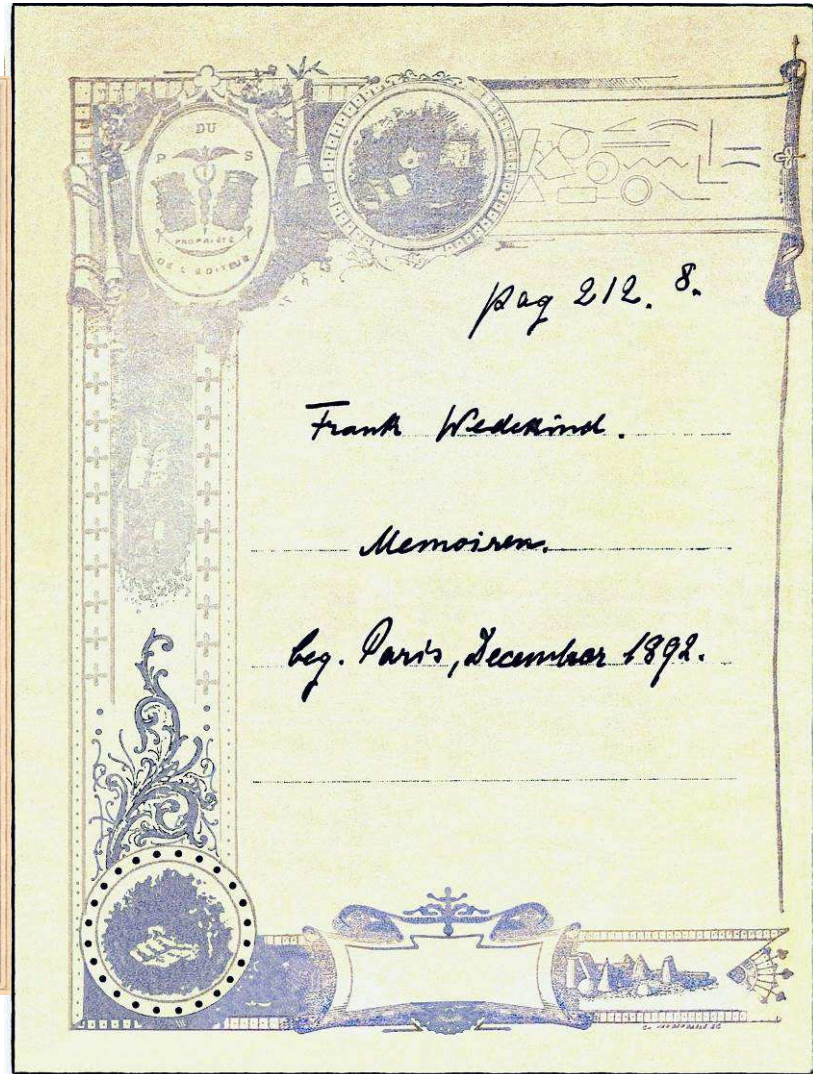 DU
P S
PROPRIÉTÉ
DE L'EDITEUR
pag 212. 8.
Frank Wedekind.
Memoiren.
beg. Paris, December 1892.